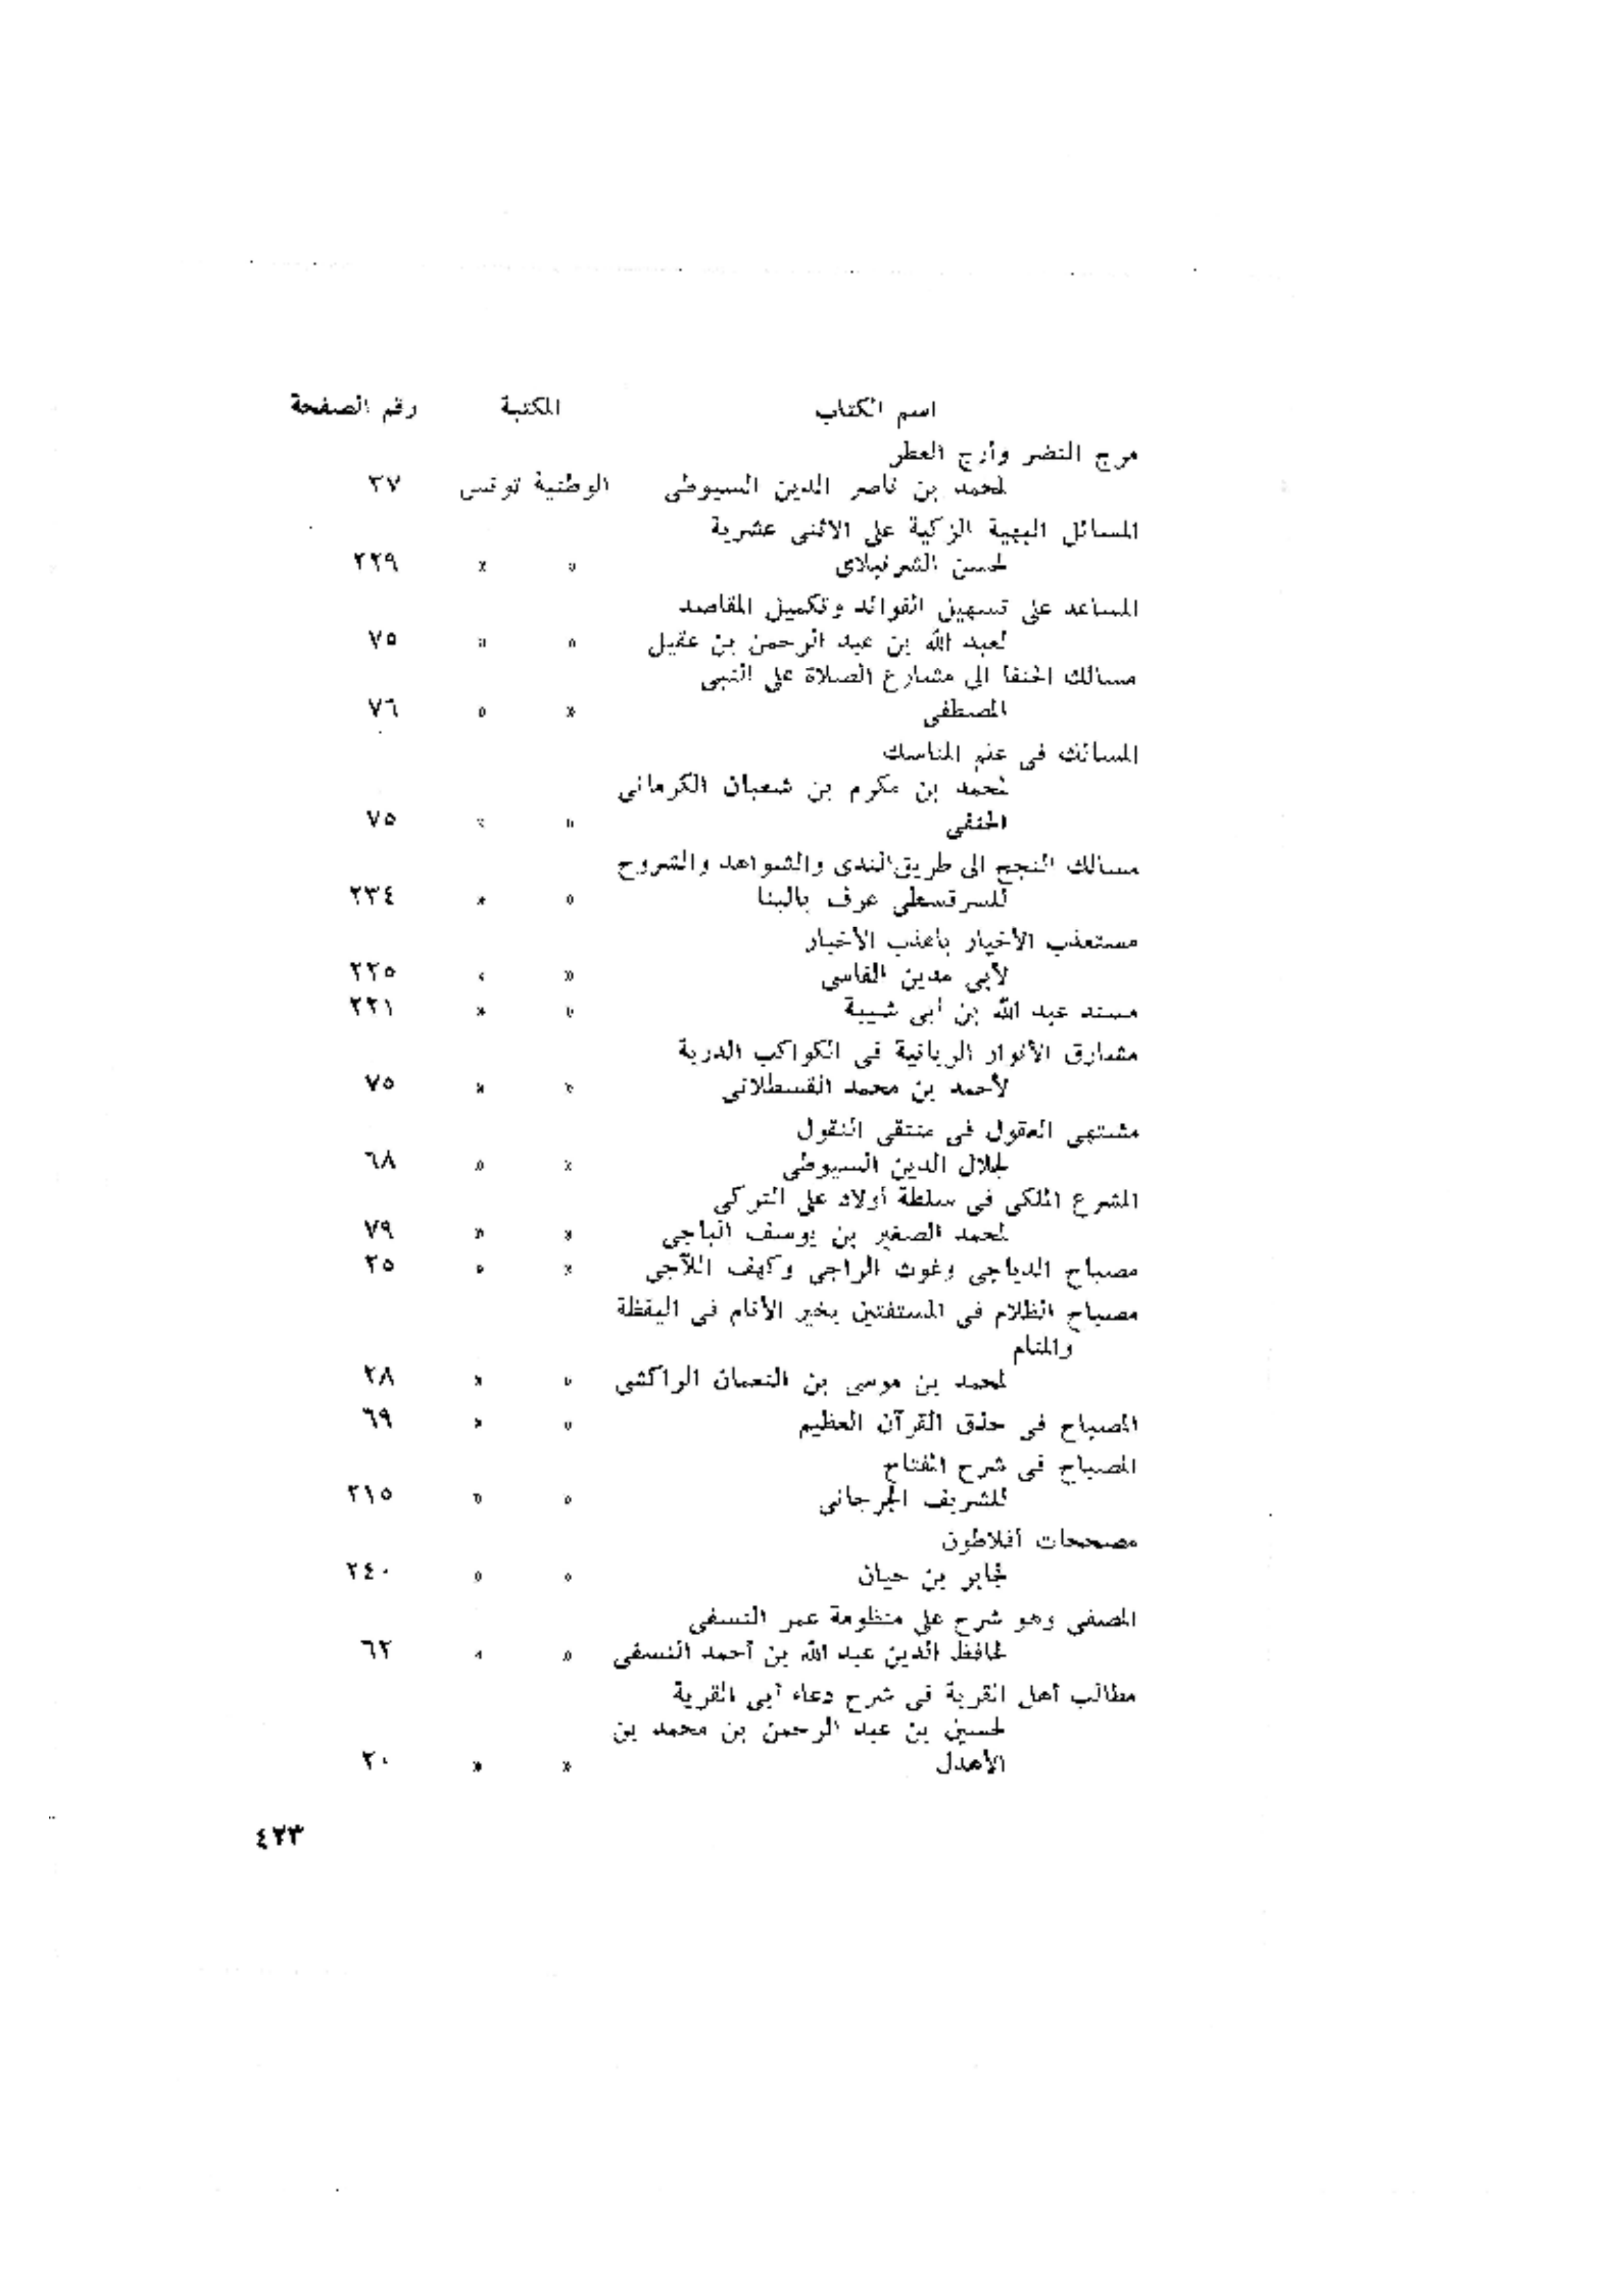 اسم الكتاب المكتبة رقم الصفحة
مرج النضر وأرج العطر
لمحمد بن ناصر الدين السيوطى الوطنية تونس ٣٧
المسائل البهية الزكية على الاثنى عشرية
لحسن الشرنبلاى » » ٢٢٩
المساعد على تسهيل الفوائد وتكميل المقاصد
لعبد الله بن عبد الرحمن بن عقيل » » ٧٥
مسالك الحنفا الى مشارع الصلاة على النبى
المصطفى » » ٧٦
المسالك فى علم المناسك
لمحمد بن مكرم بن شعبان الكرمانى
الحنفى » » ٧٥
مسالك النجح الى طريق الندى والشواهد والشروح
للسرقسطى عرف بالبنا » » ٢٣٤
مستعذب الأخيار بأعذب الأخبار
لأبى مدين الفاسى » » ٢٢٥
مسند عبد الله بن أبى شيبة » » ٢٢١
مشارق الأنوار الربانية فى الكواكب الدرية
لأحمد بن محمد القسطلانى » » ٧٥
مشتهى العقول فى منتقى النقول
لجلال الدين السيوطى » » ٦٨
المشرع الملكى فى سلطة أولاد على التركى
لمحمد الصغير بن يوسف الباجى » » ٧٩
مصباح الدياجى وغوث الراجى وكهف اللآجى » » ٢٥
مصباح الظلام فى المستغثين بخير الأنام فى اليقظة
والمنام
لمحمد بن موسى بن النعمان الراكشى » » ٢٨
المصباح فى حذق القرآن العظيم » » ٦٩
المصباح فى شرح المفتاح
للشريف الجرجانى » » ٢١٥
مصححات أفلاطون
لجابر بن حيان » » ٢٤٠
المصفى وهو شرح على منظومة عمر النسفى
لحافظ الدين عبد الله بن أحمد النسفى » » ٦٢
مطالب أهل القربة فى شرح دعاء أبى القربة
لحسين بن عبد الرحمن بن محمد بن
الأهدل » » ٢٠
٤٢٣